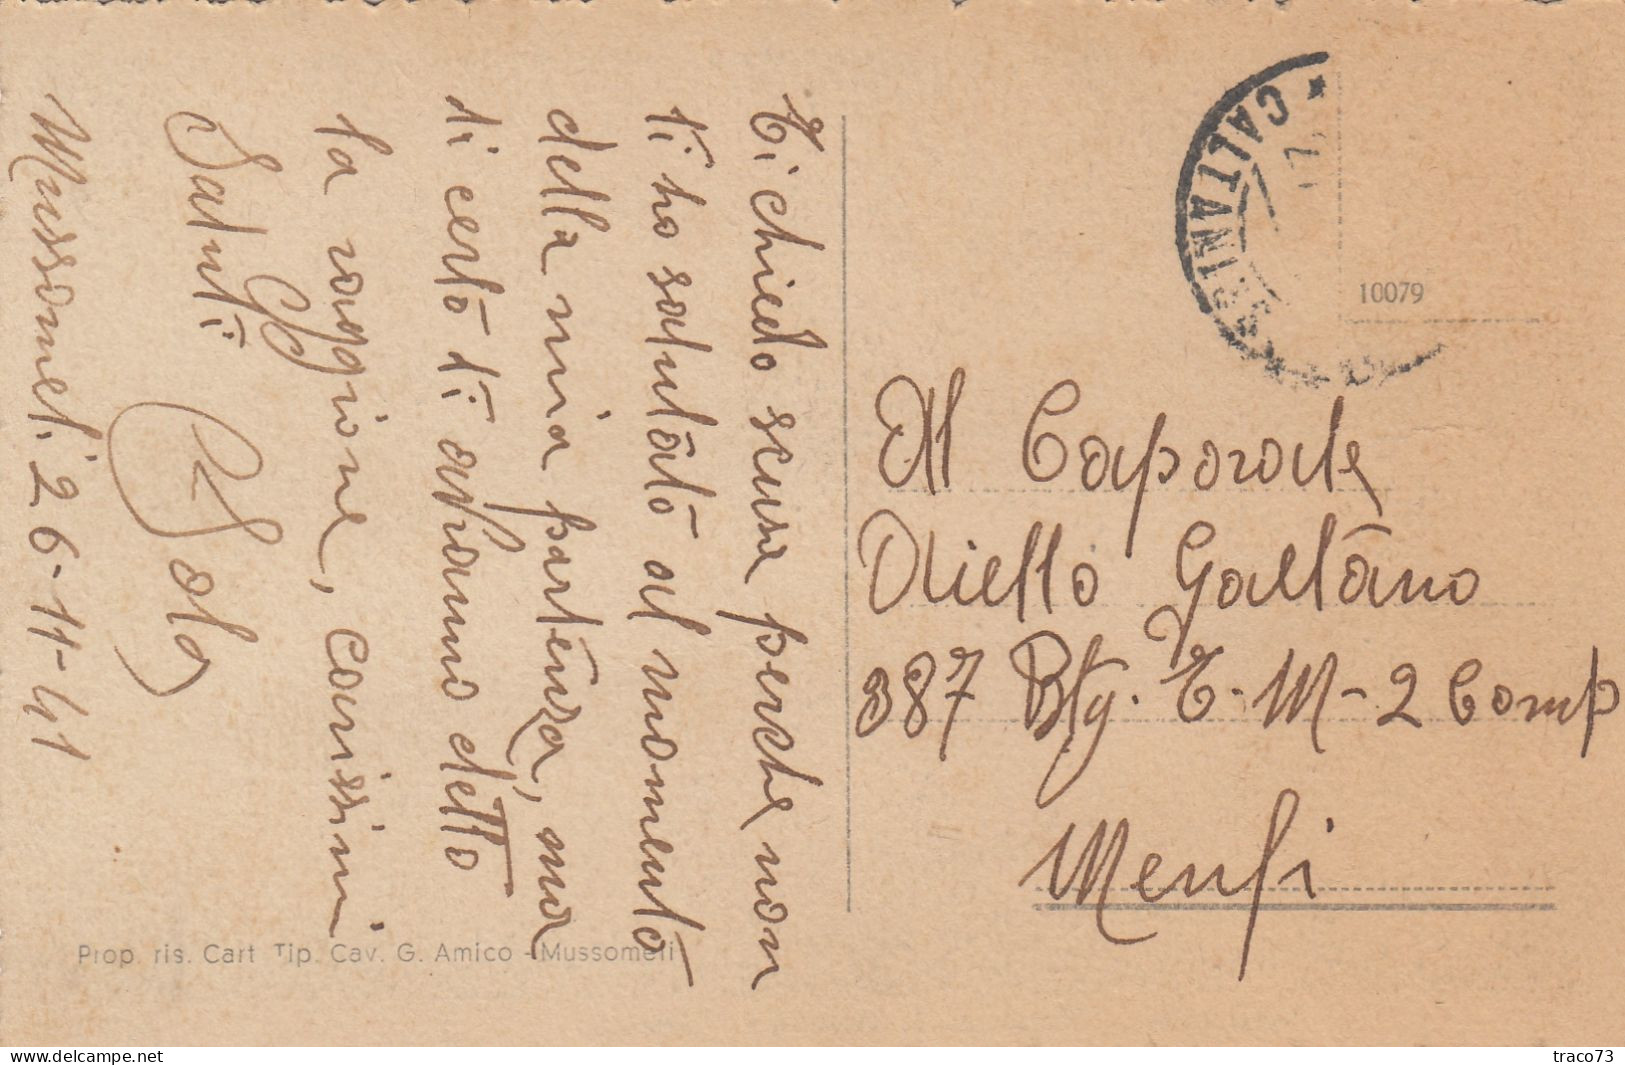 Ti chiedo scusa perche non
ti ho salutato al momento
della mia partenza, ma
di certo ti avranno detto
la raggione, carissimi
Saluti
Mussomeli 26-11-41
Al Caporale
Aiello Gaetano
387 Btg. T. M - 2 Comp
Menfi
10079
* CALTANISS
Prop. ris. Cart Tip. Cav. G. Amico - Mussomeli
delcampe.net
traco73